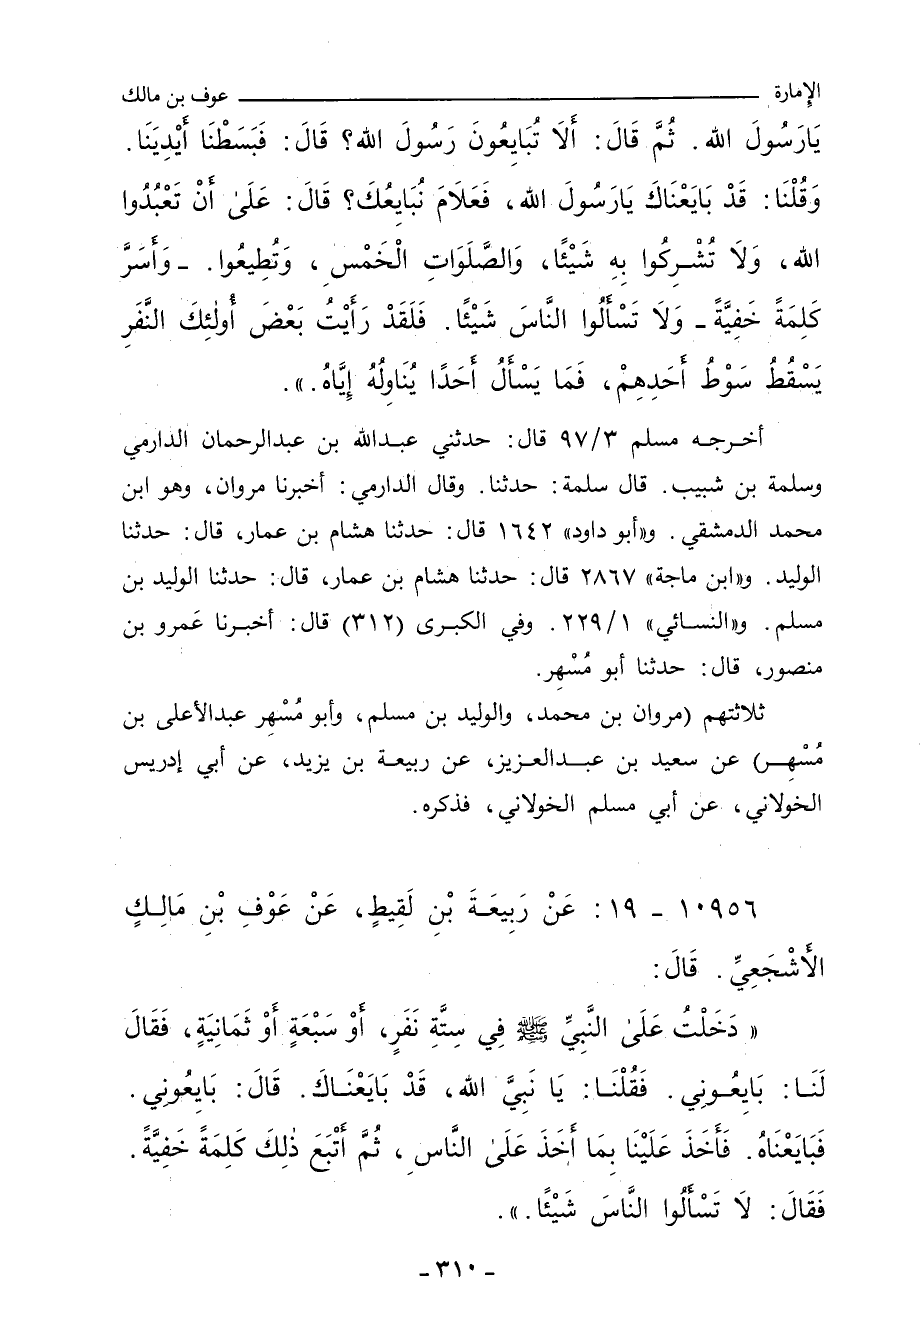 الإمارة ــــــــــــــــــــــــــــــــ عوف بن مالك
يَارَسُولَ اللهِ. ثُمَّ قَالَ: أَلَا تُبَايِعُونَ رَسُولَ اللهِ؟ قَالَ: فَبَسَطْنَا أَيْدِيَنَا.
وَقُلْنَا: قَدْ بَايَعْنَاكَ يَارَسُولَ اللهِ، فَعَلَامَ نُبَايِعُكَ؟ قَالَ: عَلَىٰ أَنْ تَعْبُدُوا
اللهَ، وَلَا تُشْرِكُوا بِهِ شَيْئًا، وَالصَّلَوَاتِ الْخَمْسِ، وَتُطِيعُوا. ـ وَأَسَرَّ
كَلِمَةً خَفِيَّةً ـ وَلَا تَسْأَلُوا النَّاسَ شَيْئًا. فَلَقَدْ رَأَيْتُ بَعْضَ أُولٰئِكَ النَّفَرِ
يَسْقُطُ سَوْطُ أَحَدِهِمْ، فَمَا يَسْأَلُ أَحَدًا يُنَاوِلُهُ إِيَّاهُ.».
أخرجه مسلم ٩٧/٣ قال: حدثني عبدالله بن عبدالرحمان الدارمي
وسلمة بن شبيب. قال سلمة: حدثنا. وقال الدارمي: أخبرنا مروان، وهو ابن
محمد الدمشقي. و«أبو داود» ١٦٤٢ قال: حدثنا هشام بن عمار، قال: حدثنا
الوليد. و«ابن ماجة» ٢٨٦٧ قال: حدثنا هشام بن عمار، قال: حدثنا الوليد بن
مسلم. و«النسائي» ٢٢٩/١. وفي الكبرى (٣١٢) قال: أخبرنا عَمرو بن
منصور، قال: حدثنا أبو مُسْهِر.
ثلاثتهم (مروان بن محمد، والوليد بن مسلم، وأبو مُسْهِر عبدالأعلى بن
مُسْهِر) عن سعيد بن عبدالعزيز، عن ربيعة بن يزيد، عن أبي إدريس
الخولاني، عن أبي مسلم الخولاني، فذكره.
١٠٩٥٦ ـ ١٩: عَنْ رَبِيعَةَ بْنِ لَقِيطٍ، عَنْ عَوْفِ بْنِ مَالِكٍ
الأَشْجَعِيِّ. قَالَ:
« دَخَلْتُ عَلَىٰ النَّبِيِّ ﷺ فِي سِتَّةِ نَفَرٍ، أَوْ سَبْعَةٍ أَوْ ثَمَانِيَةٍ، فَقَالَ
لَنَا: بَايِعُونِي. فَقُلْنَا: يَا نَبِيَّ اللهِ، قَدْ بَايَعْنَاكَ. قَالَ: بَايِعُونِي.
فَبَايَعْنَاهُ. فَأَخَذَ عَلَيْنَا بِمَا أَخَذَ عَلَىٰ النَّاسِ، ثُمَّ أَتْبَعَ ذٰلِكَ كَلِمَةً خَفِيَّةً.
فَقَالَ: لَا تَسْأَلُوا النَّاسَ شَيْئًا.».
ـ ٣١٠ ـ